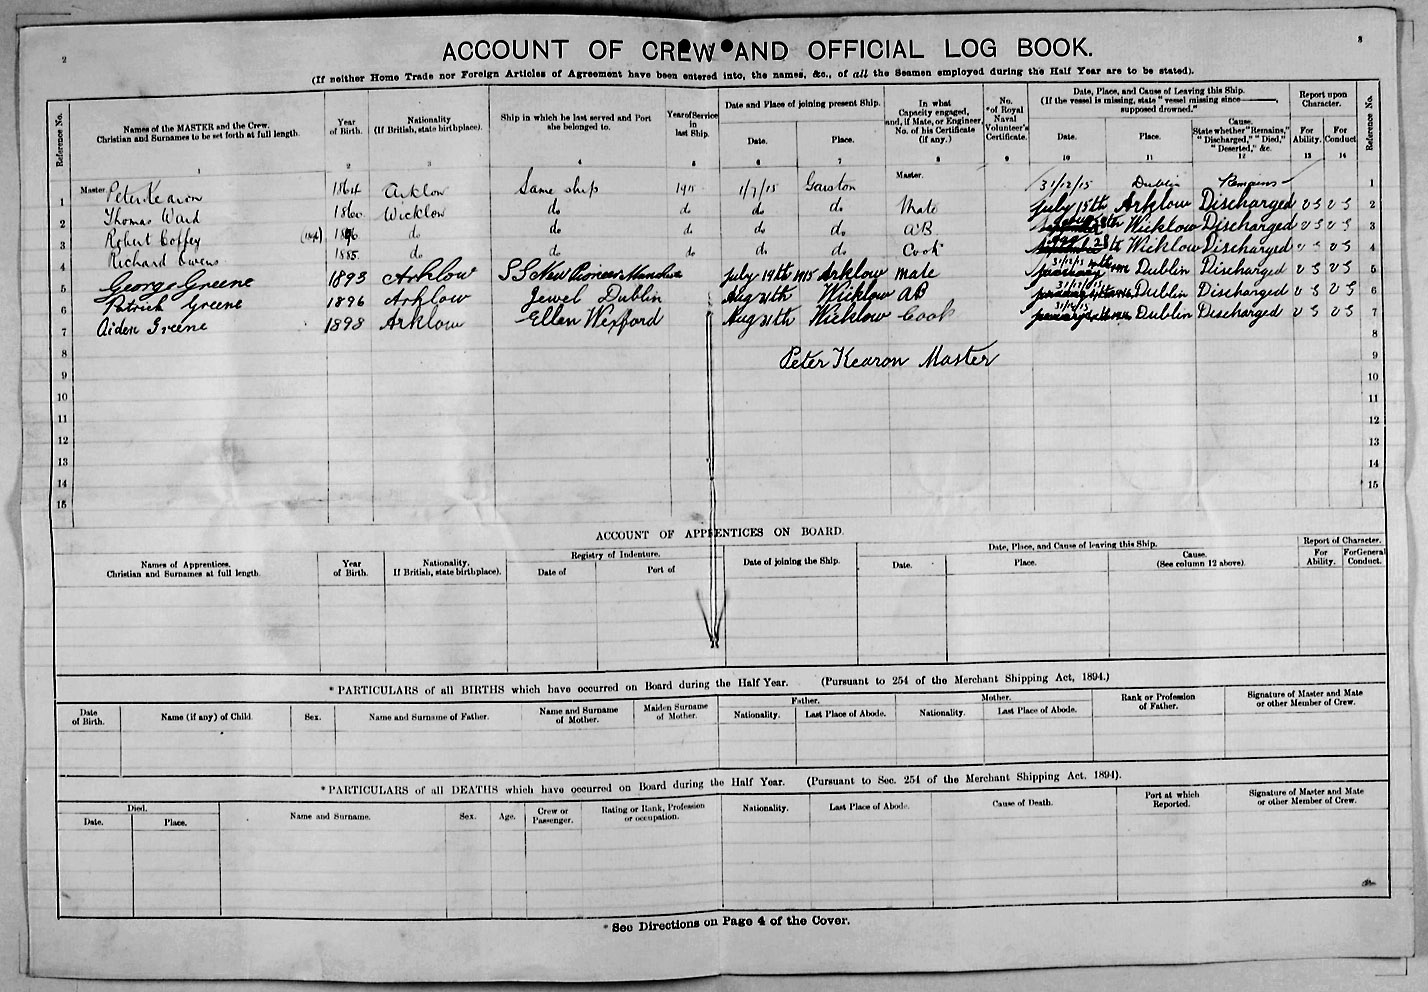 2
3
ACCOUNT OF CREW AND OFFICIAL LOG BOOK.
(If neither Home Trade nor Foreign Articles of Agreement have been entered into, the names, &c., of all the Seamen employed during the Half Year are to be stated).
Reference No. Names of the MASTER and the Crew. Christian and Surnames to be set forth at full length. Year of Birth. Nationality (If British, state birthplace). Ship in which he last served and Port she belonged to. Year of Service in last Ship. Date and Place of joining present Ship. In what Capacity engaged, and, if Mate, or Engineer, No. of his Certificate (if any.) No. "of Royal Naval Volunteer's Certificate. Date, Place, and Cause of Leaving this Ship. (If the vessel is missing, state "vessel missing since ———, supposed drowned." Report upon Character. Reference No.
Date. Place. Date. Place. Cause. State whether "Remains," "Discharged," "Died," "Deserted," &c. For Ability. For Conduct
1 2 3 4 5 6 7 8 9 10 11 12 13 14
1 Master Peter Kearon 1864 Arklow Same ship 1915 1/7/15 Garston Master. 31/12/15 Dublin Remains 1
2 Thomas Ward 1860 Wicklow do do do do Mate July 15th Arklow Discharged v s v s 2
3 Robert Coffey do do do do do AB 28th Wicklow Discharged v s v s 3
4 Richard Owens 1885 do do do do do Cook 28th Wicklow Discharged v s v s 4
5 George Greene 1893 Arklow SS New Pioneer July 19th 1915 Arklow Mate 31/12/15 Dublin Discharged v s v s 5
6 Patrick Greene 1896 Arklow Jewel Dublin Aug 31th Wicklow AB 31/12/15 Dublin Discharged v s v s 6
7 Aiden Greene 1898 Arklow Ellen Wexford Aug 31th Wicklow Cook 31/12/15 Dublin Discharged v s v s 7
8 8
9 Peter Kearon Master 9
10 10
11 11
12 12
13 13
14 14
15 15
ACCOUNT OF APPRENTICES ON BOARD.
Names of Apprentices. Christian and Surnames at full length. Year of Birth. Nationality. If British, state birthplace). Registry of Indenture. Date of joining the Ship. Date, Place, and Cause of leaving this Ship. Report of Character.
Date of Port of Date. Place. Cause. (See column 12 above). For Ability. For General Conduct.
*PARTICULARS of all BIRTHS which have occurred on Board during the Half Year. (Pursuant to 254 of the Merchant Shipping Act, 1894.)
Date of Birth. Name (if any) of Child. Sex. Name and Surname of Father. Name and Surname of Mother. Maiden Surname of Mother. Father. Mother. Rank or Profession of Father. Signature of Master and Mate or other Member of Crew.
Nationality. Last Place of Abode. Nationality. Last Place of Abode.
*PARTICULARS of all DEATHS which have occurred on Board during the Half Year. (Pursuant to Sec. 254 of the Merchant Shipping Act. 1894).
Died. Name and Surname. Sex. Age. Crew or Passenger. Rating or Rank, Profession or occupation. Nationality. Last Place of Abode. Cause of Death. Port at which Reported. Signature of Master and Mate or other Member of Crew.
Date. Place.
* See Directions on Page 4 of the Cover.